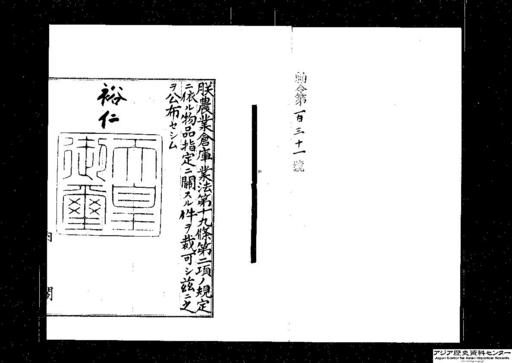 勅令第一百三十一號
朕農業倉庫業法第十九條第二項ノ規定
ニ依ル物品指定ニ關スル件ヲ裁可シ茲ニ之
ヲ公布セシム
裕仁
天皇
御璽
内閣
アジア歴史資料センター
Japan Center for Asian Historical Records